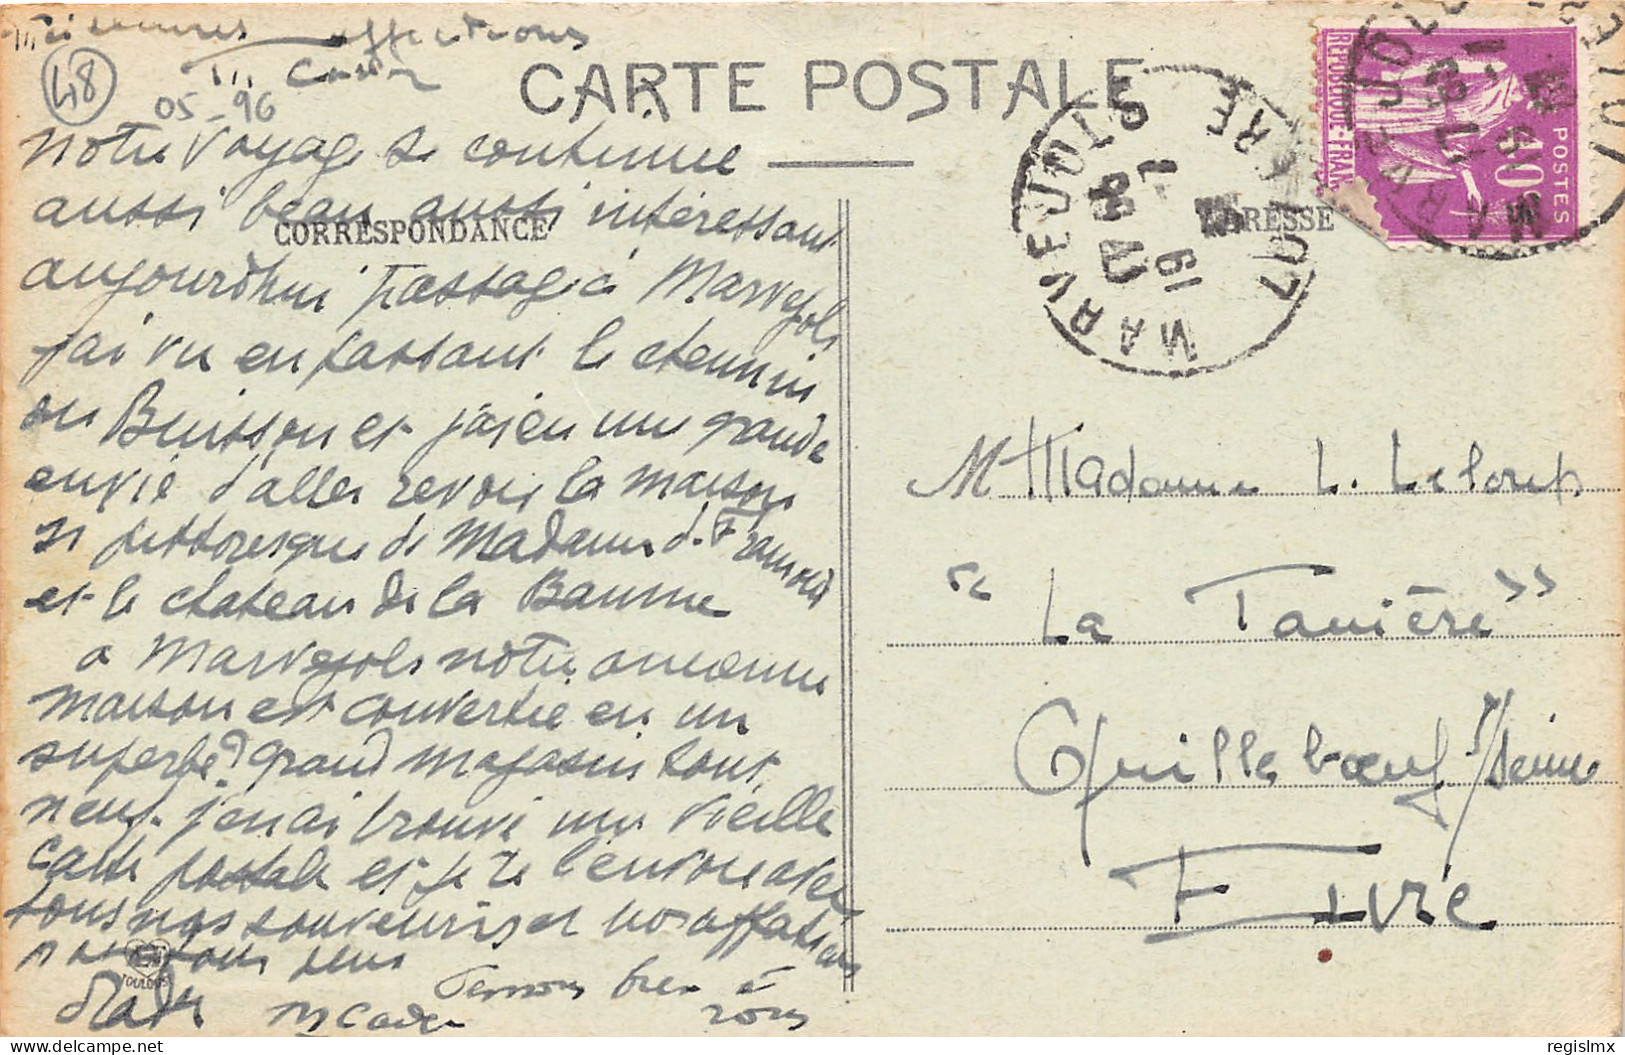 affections
48
05-96
CARTE POSTALE
notre voyage se continue
aussi beau aussi intéressant
CORRESPONDANCE
ADRESSE
aujourd'hui passage à Marvejols
j'ai vu en passant le chemin
du Buisson et j'ai eu une grande
envie d'aller revoir la maison
si pittoresque de Madame de
et le chateau de la Baume
a Marvejols notre ancienne
maison est convertie en un
superbe grand magasin tout
neuf. j'en ai trouvé une vieille
carte postale et je te l'envoie avec
tous nos souvenirs et nos affections
pour tous deux
TOULOUSE
Pensons bien à
vous
REPUBLIQUE-FRAN
POSTES
40
MARVEJOLS
LOZERE
17
19
Madame L. Leloup
"La Tanière"
Quillebœuf s/Seine
Eure
delcampe.net
regislmx